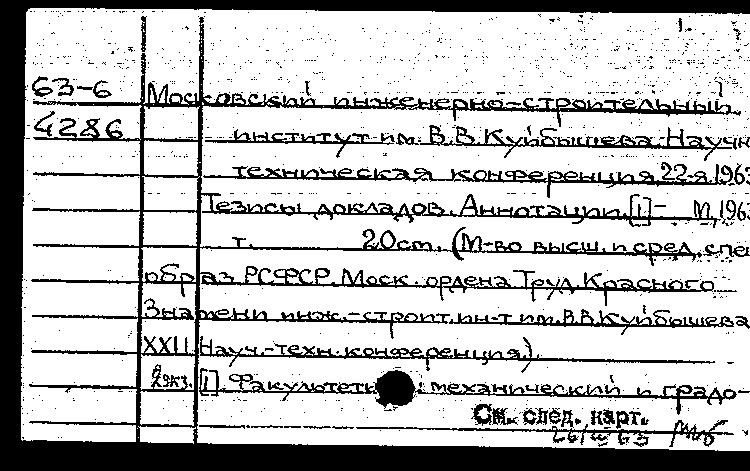 63-6 Московский инженерно-строительный
4286 институт им. В.В.Куйбышева. Научн
техническая конференция, 22-я. 1963
Тезисы докладов. Аннотации. [1]- М, 1963
т. 20см. (М-во высш. и сред. спец
образ РСФСР. Моск. ордена Труд. Красного
Знамени инж.-строит. ин-т им. В.В.Куйбышева
XXII Науч.-техн. конференция).
2экз. [1]. Факультеты: механический и градо-
См. след. карт.
63